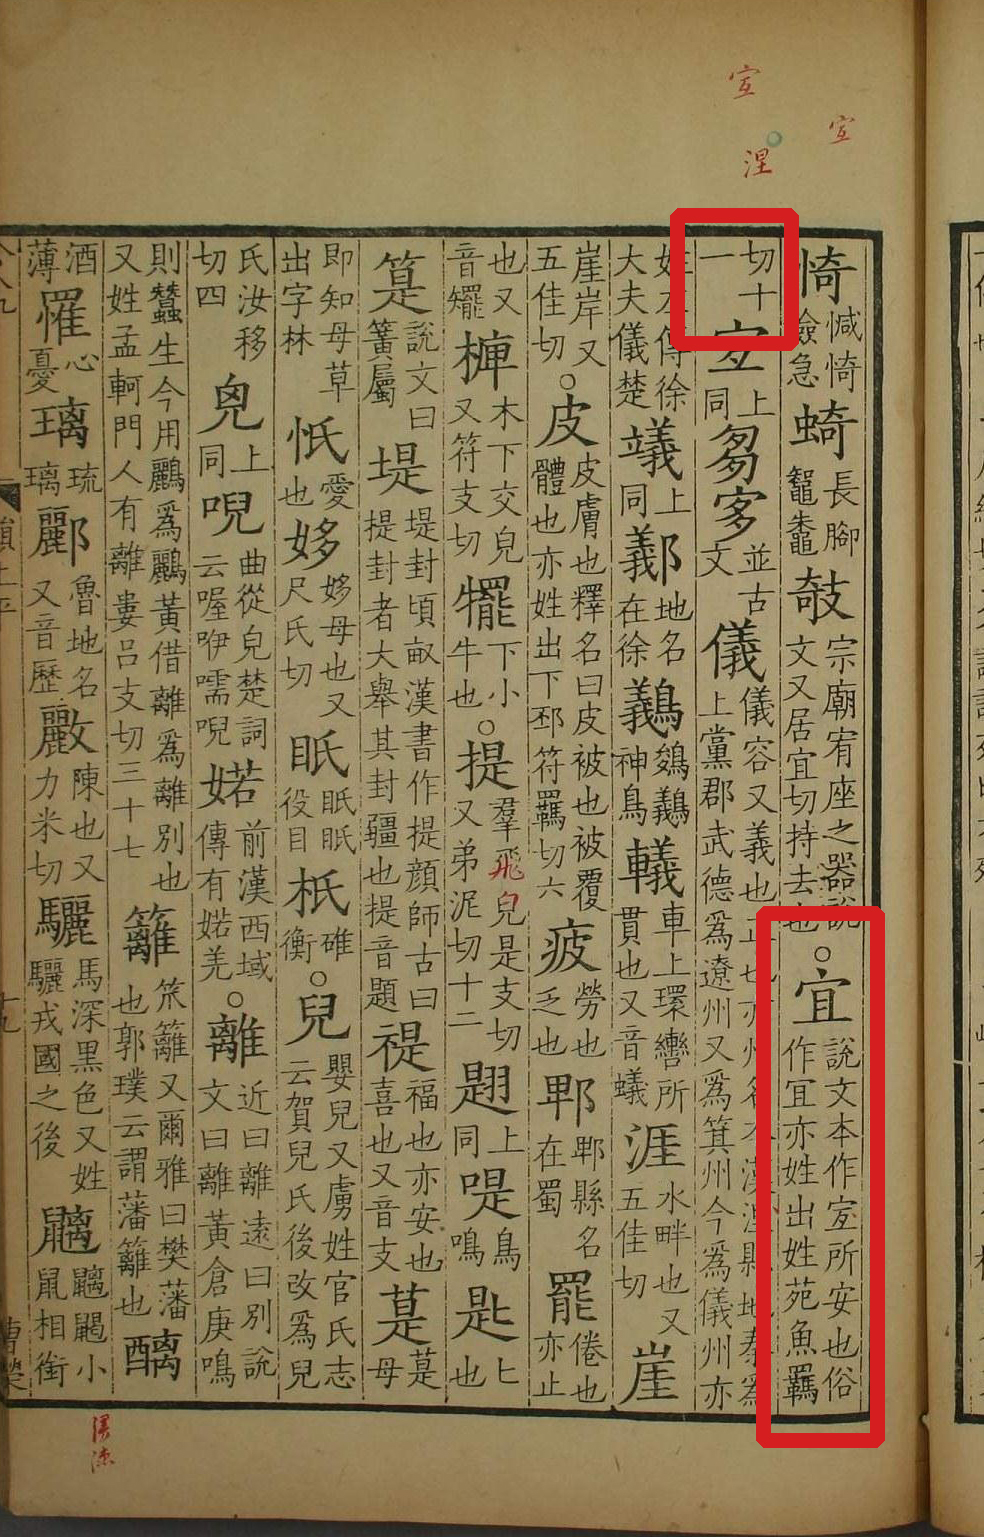 宐
宐
湼
㥓緘㥓險急長腳鼅鼄攲宗廟宥座之器說文又居宜切持去也○宜說文本作宐所安也俗作宜亦姓出姓苑魚羈
切十一宐上同㝖並古文儀儀容又義也正也亦州名本漢湼縣地秦爲上黨郡武德爲遼州又爲箕州今爲儀州亦
姓左傳徐大夫儀楚上同地名在徐鸃鵕鸃神鳥轙車上環轡所貫也又音蟻涯水畔也又五佳切崖
崖岸又五佳切○皮皮膚也釋名曰皮被也被覆體也亦姓出下邳符羈切六疲勞也乏也郫郫縣名在蜀罷倦也亦止
也又音矲椑木下交皃又符支切犤下小牛也○提羣飛皃是支切又弟泥切十二翨上同㖷鳥鳴匙匕也
說文曰簧屬堤堤封頃畝漢書作提顏師古曰提封者大舉其封疆也提音題禔福也亦安也喜也又音支䓳䓳母
即知母草出字林忯愛也姼姼母也又尺氏切眂眂眂役目碓衡○兒嬰兒又虜姓官氏志云賀兒氏後改爲兒
氏汝移切四上同唲曲從皃楚詞云喔咿嚅唲婼前漢西域傳有婼羌○離近曰離遠曰別說文曰離黃倉庚鳴
則蠶生今用鸝爲鸝黃借離爲離別也又姓孟軻門人有離婁呂支切三十七籬笊籬又爾雅曰樊藩也郭璞云謂藩籬也醨
酒薄罹心憂璃琉璃酈魯地名又音歷陳也又力米切驪馬深黑色又姓驪戎國之後小鼠相銜